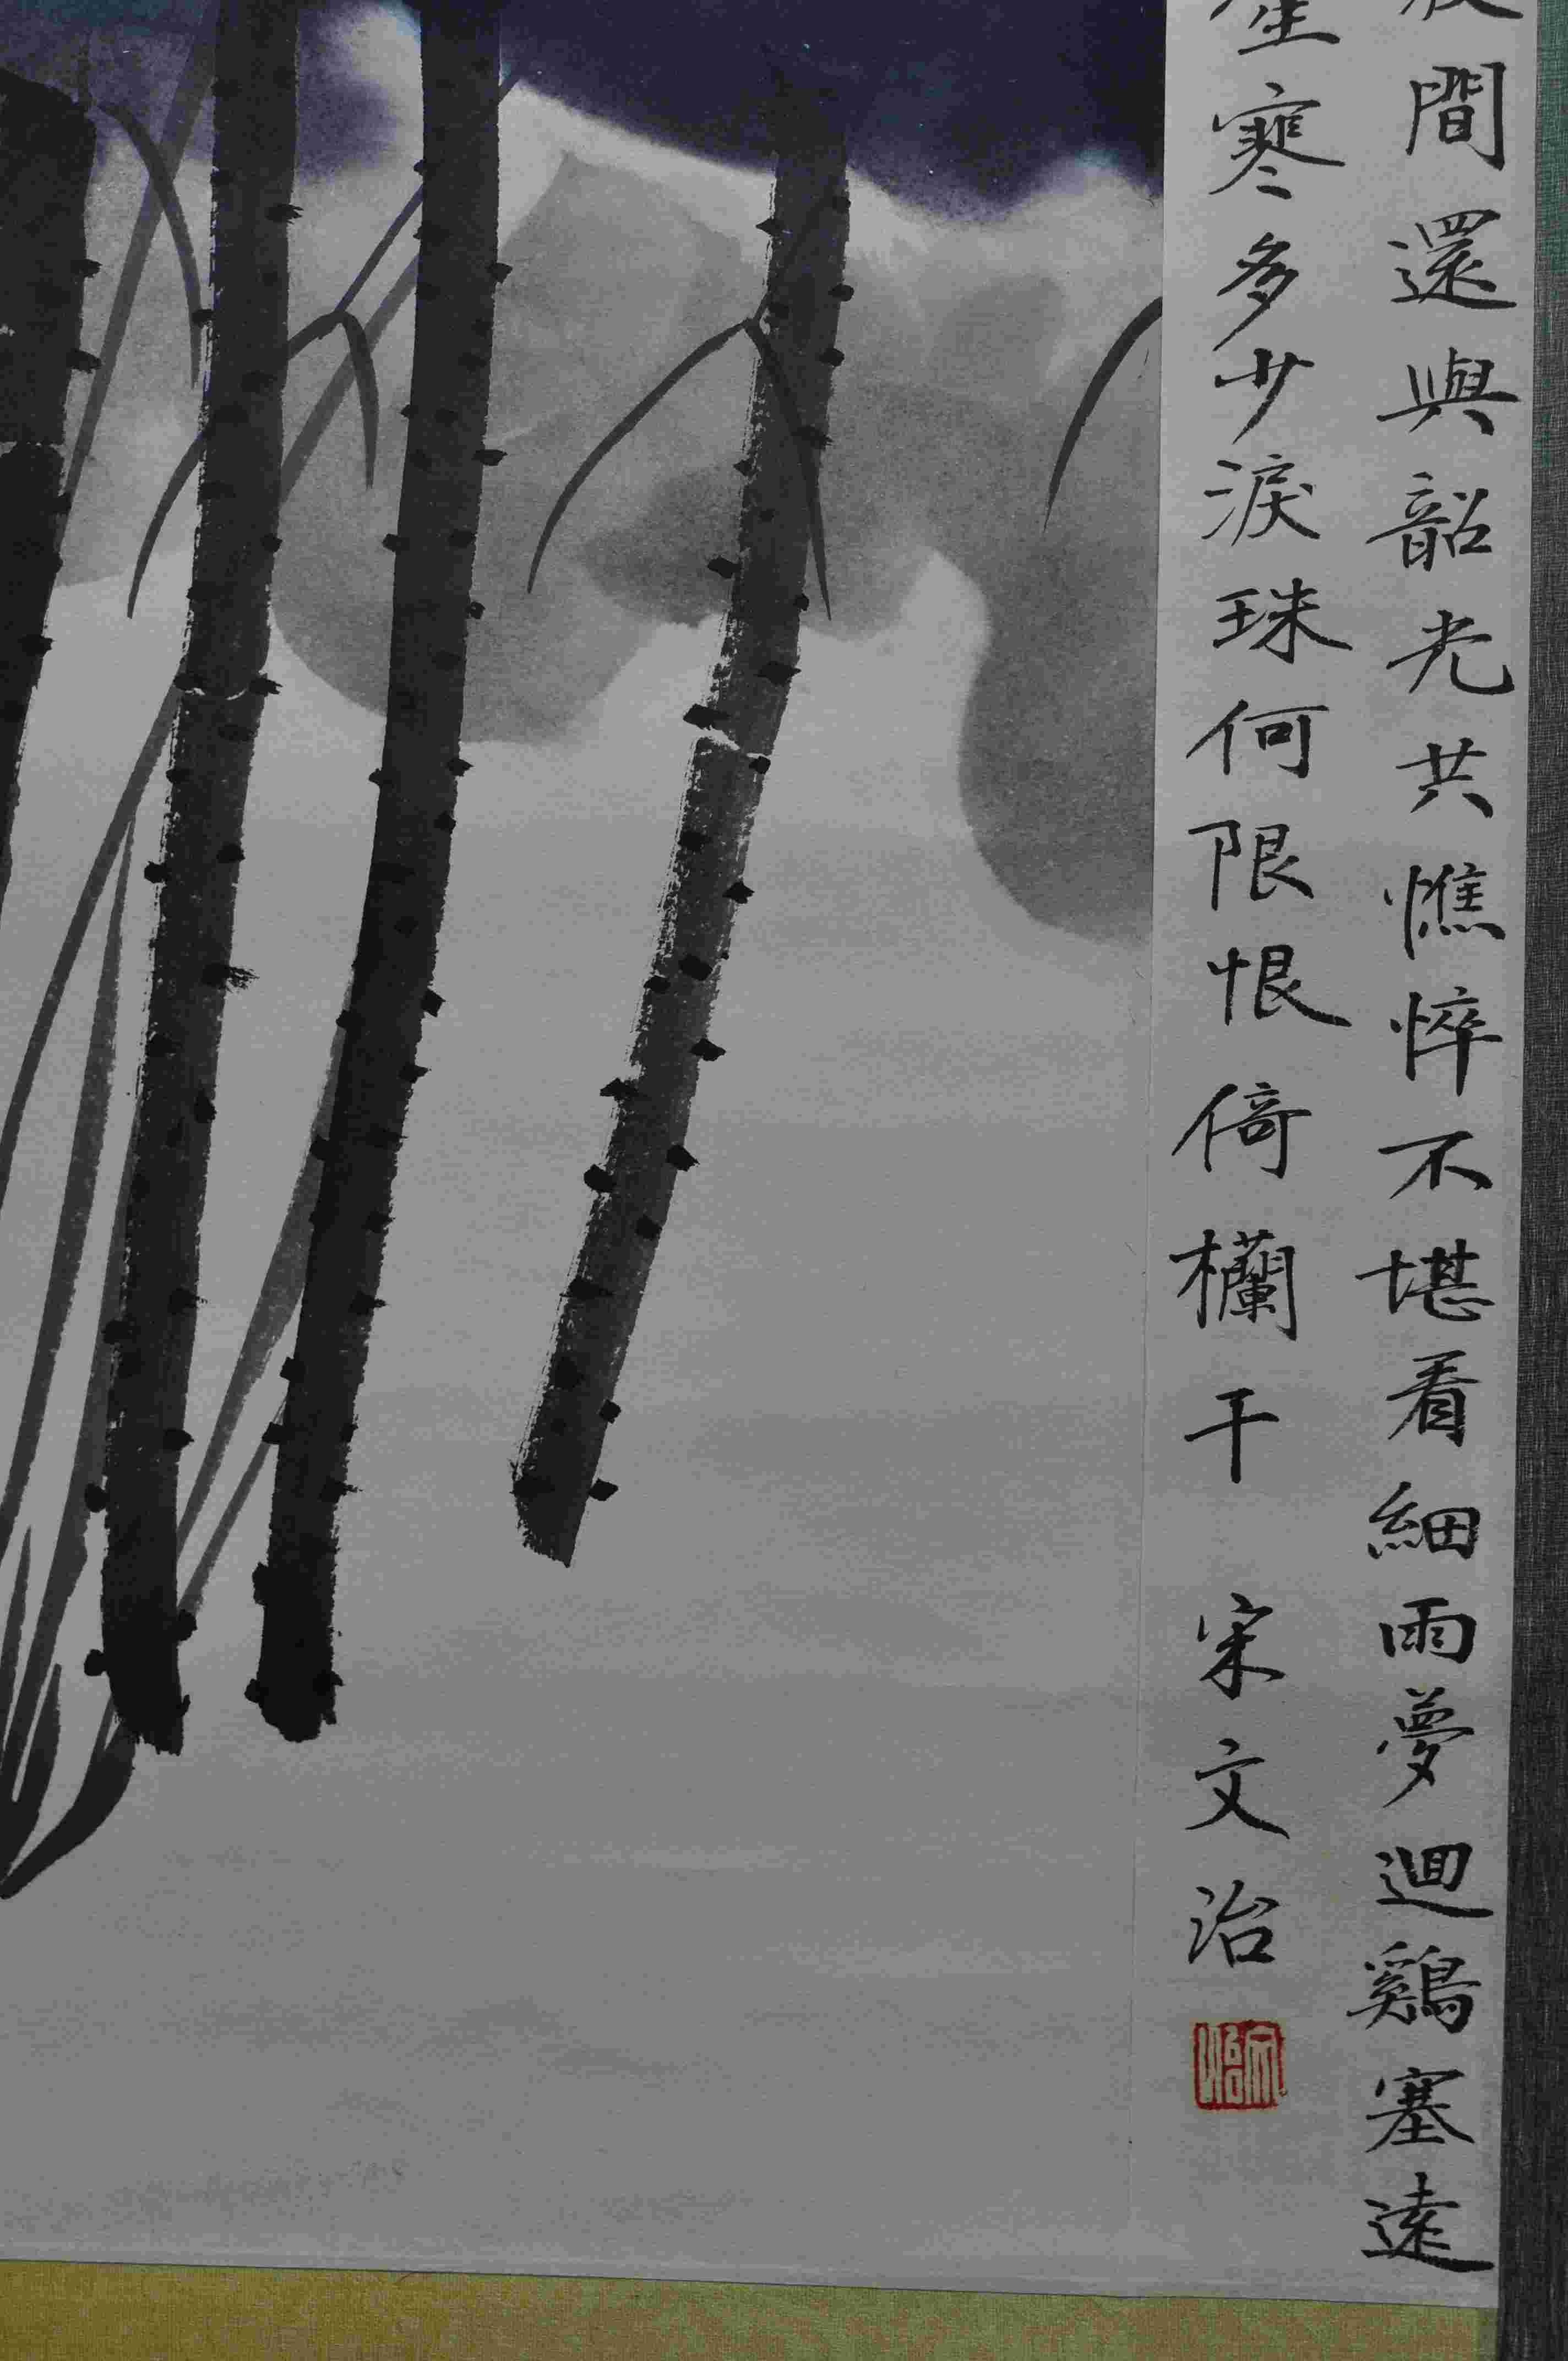 間還與韶光共憔悴不堪看細雨夢迴鷄塞遠
寒多少淚珠何限恨倚欄干 宋文治